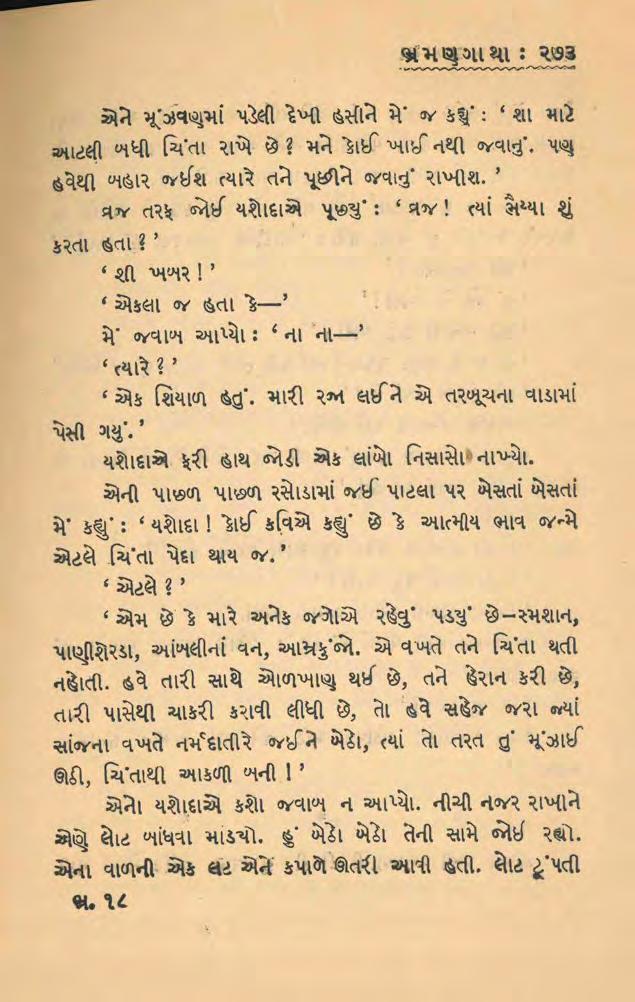 ભ્રમણગાથા : ૨૭૩
એને મૂંઝવણમાં પડેલી દેખી હસીને મેં જ કહ્યું : ‘ શા માટે
આટલી બધી ચિંતા રાખે છે? મને કોઈ ખાઈ નથી જવાનું. પણ
હવેથી બહાર જઈશ ત્યારે તને પૂછીને જવાનું રાખીશ. ’
વ્રજ તરફ જોઈ યશોદાએ પૂછ્યું : ‘ વ્રજ ! ત્યાં ભૈય્યા શું
કરતા હતા ? ’
‘ શી ખબર ! ’
‘ એકલા જ હતા કે—’
મેં જવાબ આપ્યો : ‘ ના ના—’
‘ ત્યારે ? ’
‘ એક શિયાળ હતું. મારી રજા લઈને એ તરબૂચના વાડામાં
પેસી ગયું. ’
યશોદાએ ફરી હાથ જોડી એક લાંબો નિસાસો નાખ્યો.
એની પાછળ પાછળ રસોડામાં જઈ પાટલા પર બેસતાં બેસતાં
મેં કહ્યું : ‘ યશોદા ! કોઈ કવિએ કહ્યું છે કે આત્મીય ભાવ જન્મે
એટલે ચિંતા પેદા થાય જ. ’
‘ એટલે ? ’
‘ એમ છે કે મારે અનેક જગોએ રહેવું પડયું છે–સ્મશાન,
પાણીશેરડા, આંબલીનાં વન, આમ્રકુંજો. એ વખતે તને ચિંતા થતી
નહોતી. હવે તારી સાથે ઓળખાણ થઈ છે, તને હેરાન કરી છે,
તારી પાસેથી ચાકરી કરાવી લીધી છે, તો હવે સહેજ જરા જ્યાં
સાંજના વખતે નર્મદાતીરે જઈને બેઠો, ત્યાં તો તરત તું મૂંઝાઈ
ઊઠી, ચિંતાથી આકળી બની ! ’
એનો યશોદાએ કશો જવાબ ન આપ્યો. નીચી નજર રાખીને
એણે લોટ બાંધવા માડ્યો. હું બેઠો બેઠો તેની સામે જોઈ રહ્યો.
એના વાળની એક લટ એને કપાળે ઊતરી આવી હતી. લોટ ટૂંપતી
ભ. ૧૮